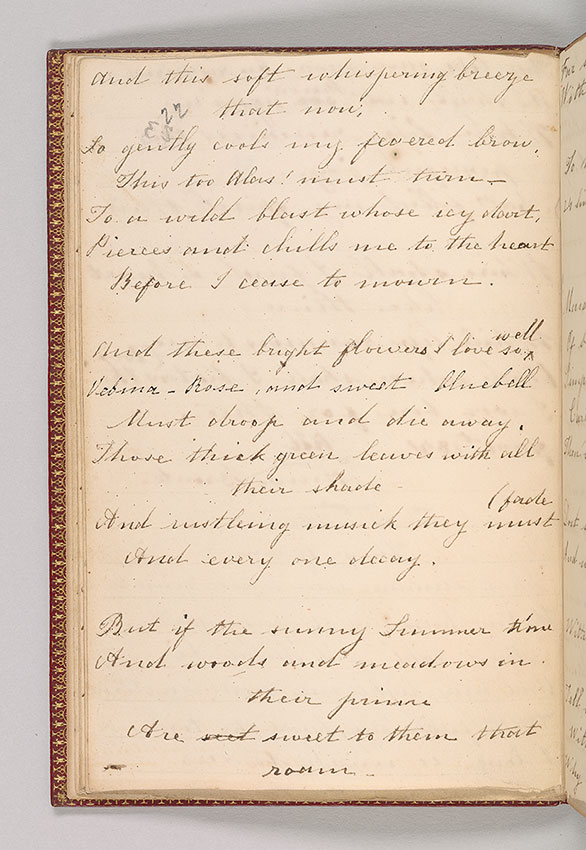 And this soft whispering breeze
that now,
22
So gently cools my fevered brow,
This too Alas! must turn —
To a wild blast whose icy dart,
Pierces and chills me to the heart
Before I cease to mourn.
And these bright flowers I love so well
Vebina – Rose, and sweet bluebell
Must droop and die away.
Those thick green leaves with all
their shade
And rustleing musick they must (fade
And every one decay.
But if the sunny Summer time
And woods and meadows in
their prime
Are sweet to them that
roam –